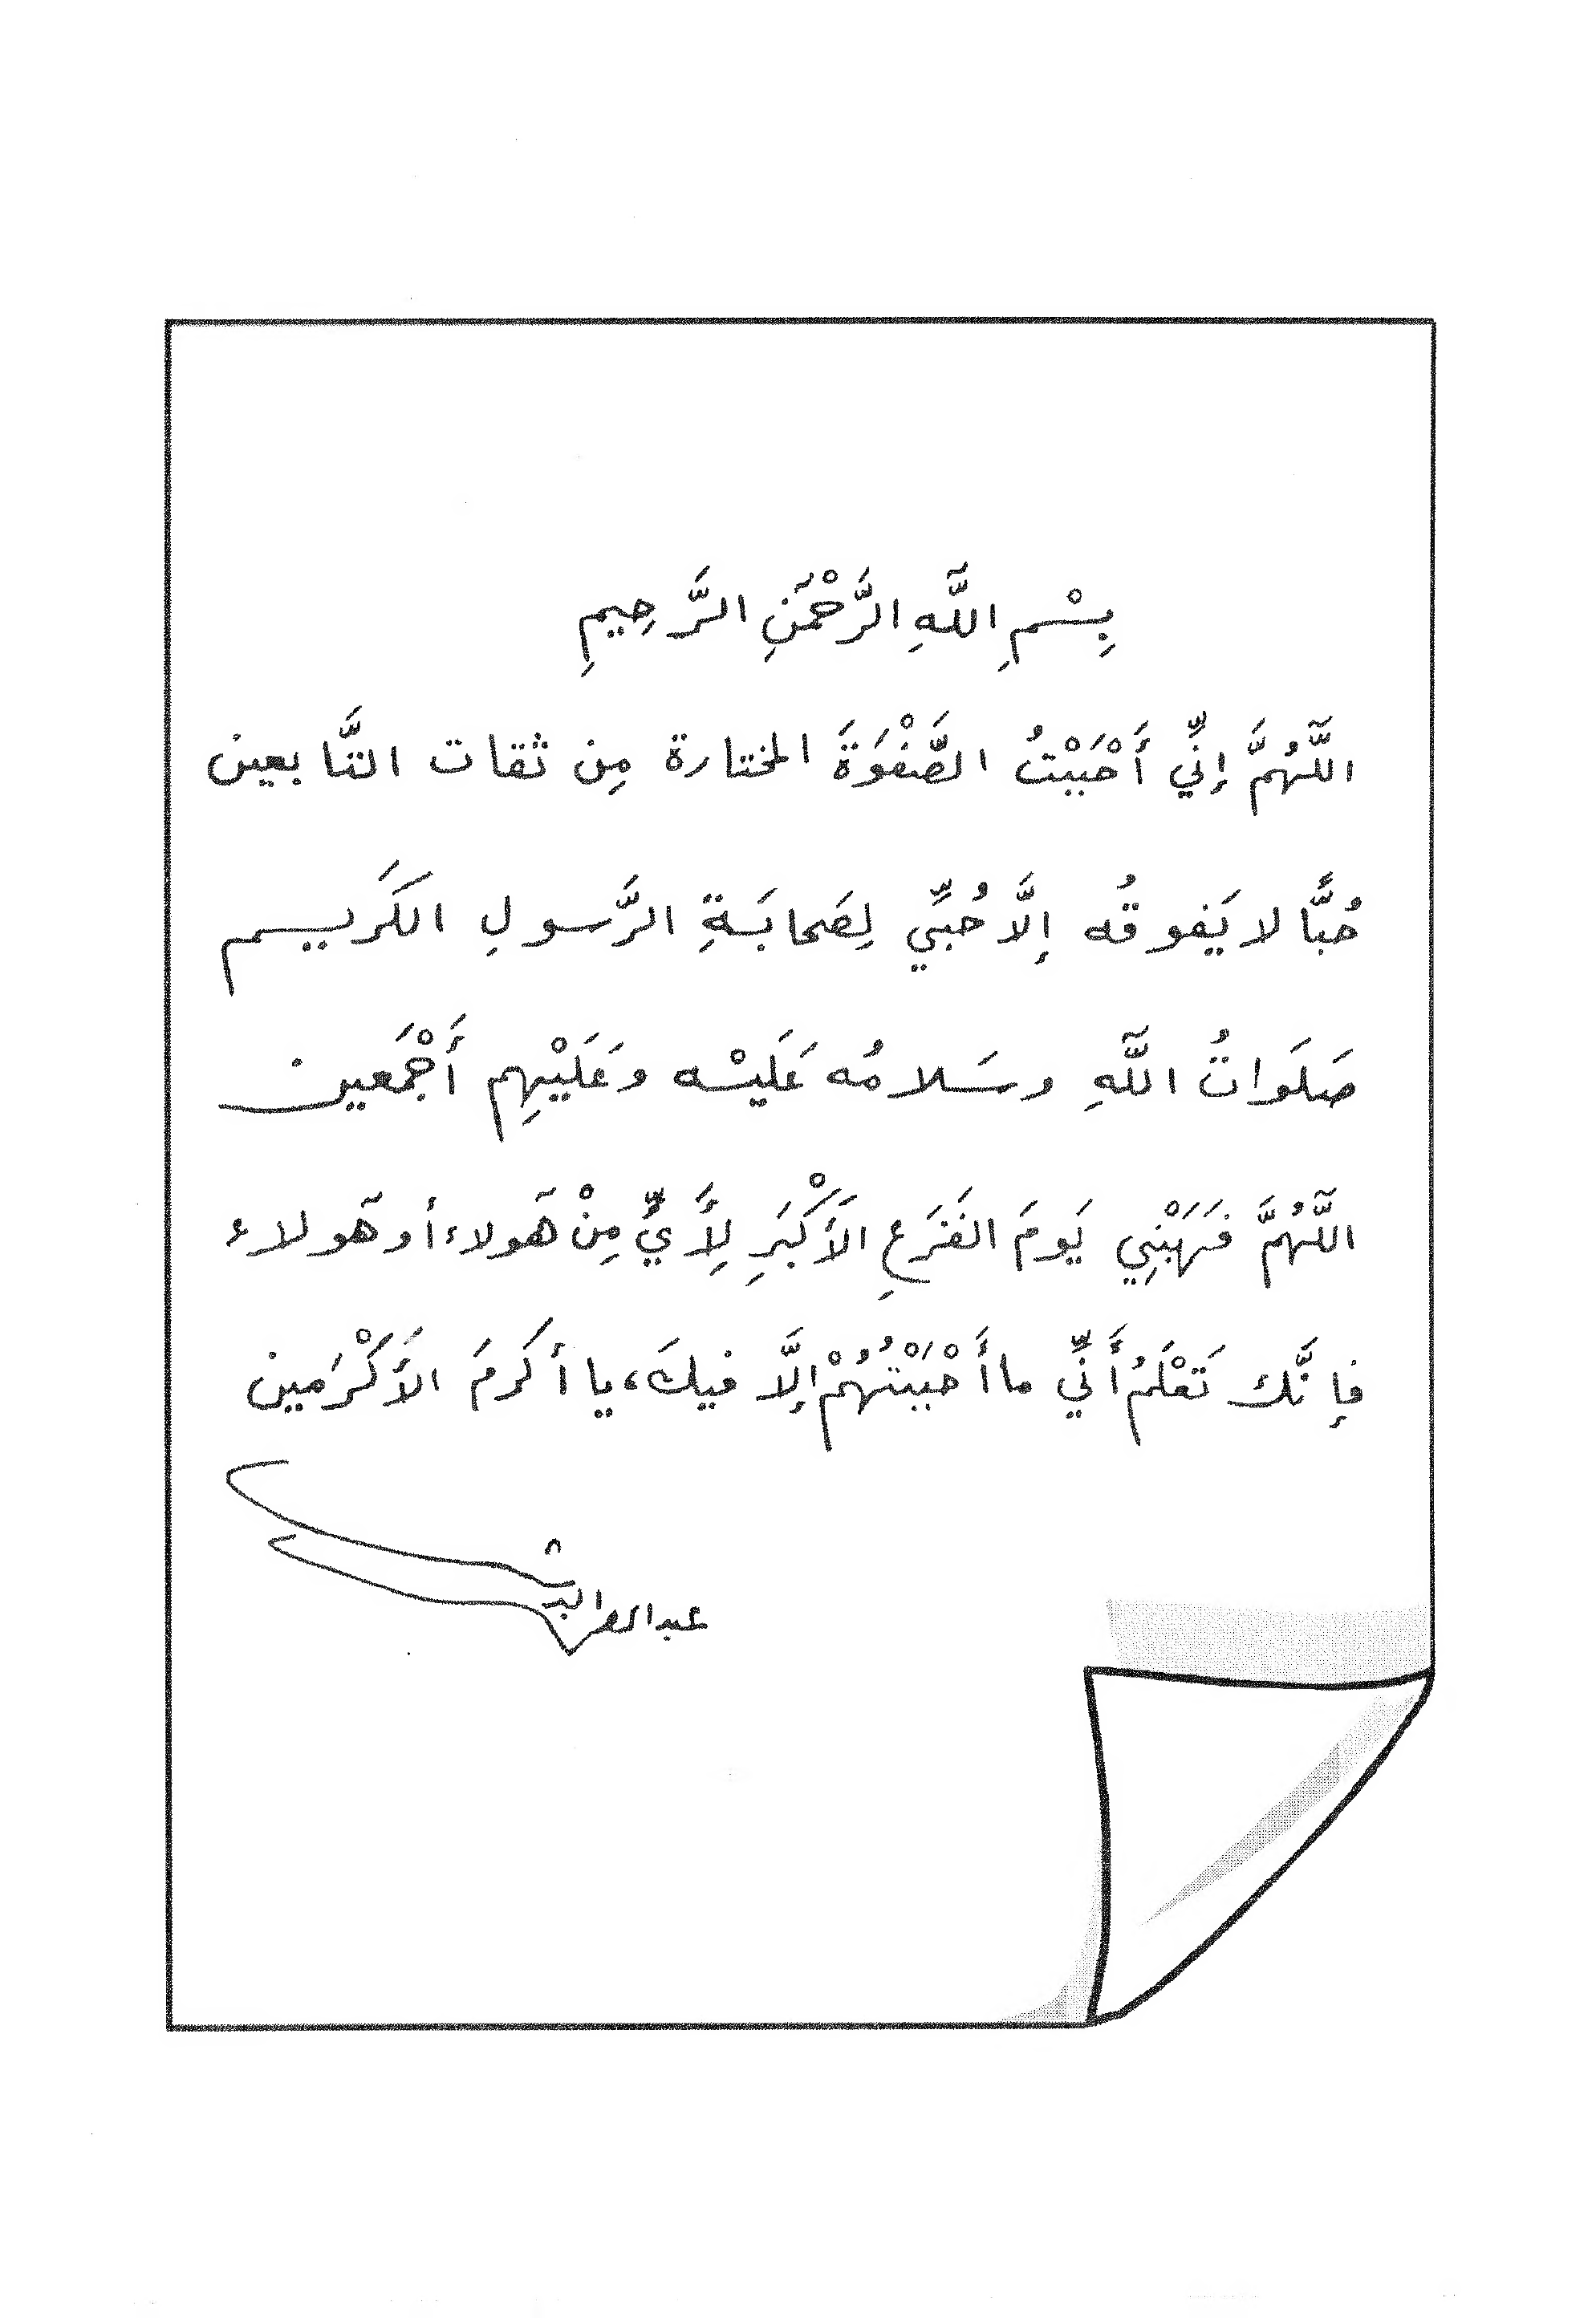 بِسْمِ اللَّهِ الرَّحْمَنِ الرَّحِيمِ
اللَّهُمَّ إِنِّي أَحْبَبْتُ الصَّفْوَةَ المختارة مِن ثقات التَّابعين
حُبًّا لا يَفوقُه إِلَّا حُبِّي لِصَحابَةِ الرَّسولِ الكَريم
صَلَوَاتُ اللَّهِ وسَلامُه عَلَيْه وعَلَيْهِم أَجْمَعين
اللَّهُمَّ فَهَبْنِي يَومَ الفَزَعِ الأَكْبَرِ لِأَيٍّ مِنْ هَولاء أو هَولاء
فإنَّك تَعْلَمُ أَنِّي ما أَحْبَبْتُهُمْ إلَّا فيكَ، يا أكرمَ الأَكْرَمين